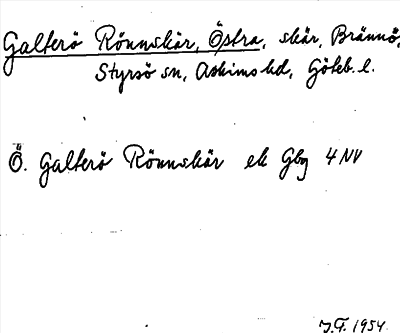 Galterö Rönnskär, Östra, skär, Brännö,
Styrsö sn, Askims hd, Göteb. l.
Ö. Galterö Rönnskär ek Gbg 4 NV
J.G. 1954.